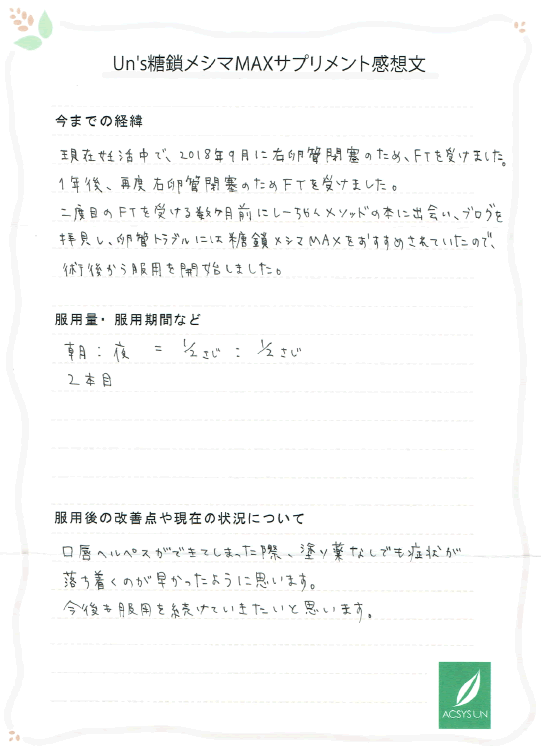 Un's糖鎖メシマMAXサプリメント感想文
今までの経緯
現在妊活中で、2018年9月に右卵管閉塞のため、FTを受けました。
1年後、再度右卵管閉塞のためFTを受けました。
二度目のFTを受ける数ヶ月前にしーちゃんメソッドの本に出会い、ブログを
拝見し、卵管トラブルには糖鎖メシマMAXをおすすめされていたので、
術後から服用を開始しました。
服用量・服用期間など
朝：夜 = 1/2さじ：1/2さじ
2本目
服用後の改善点や現在の状況について
口唇ヘルペスができてしまった際、塗り薬なしでも症状が
落ち着くのが早かったように思います。
今後も服用を続けていきたいと思います。
ACSYSUN